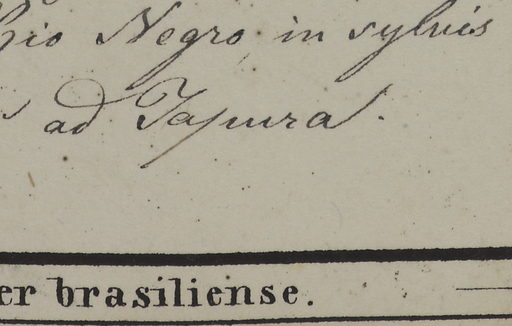 Rio Negro, in sylvis
ad Japura.
er brasiliense.